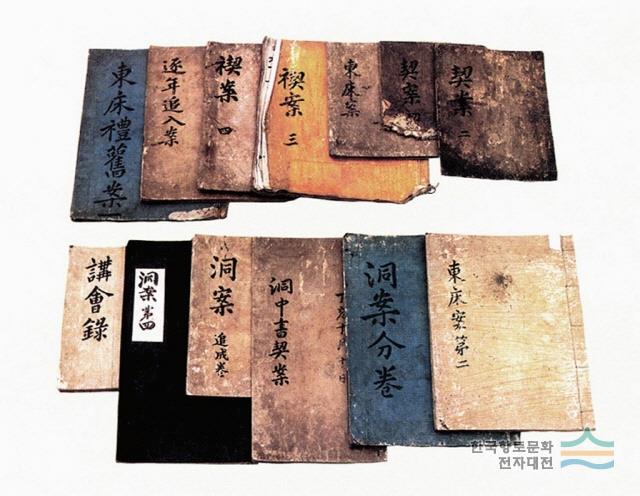 東床禮舊案一
逐年追入案
禊案 四
禊案 三
東床案
契案 初
契案 二
講會錄
洞案 第四
洞案
追成卷
洞中書契案
洞案分卷
東床案第二
한국향토문화
전자대전